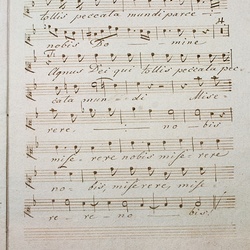 tollis peccata mundi parce
nobis Do - mine
Agnus Dei qui tollis peccata pec-
cata mun - di Mise-
rere, - no - bis
mise-rere nobis mise-rere
no - bis, miserere, mise-
re - re - no - bis,